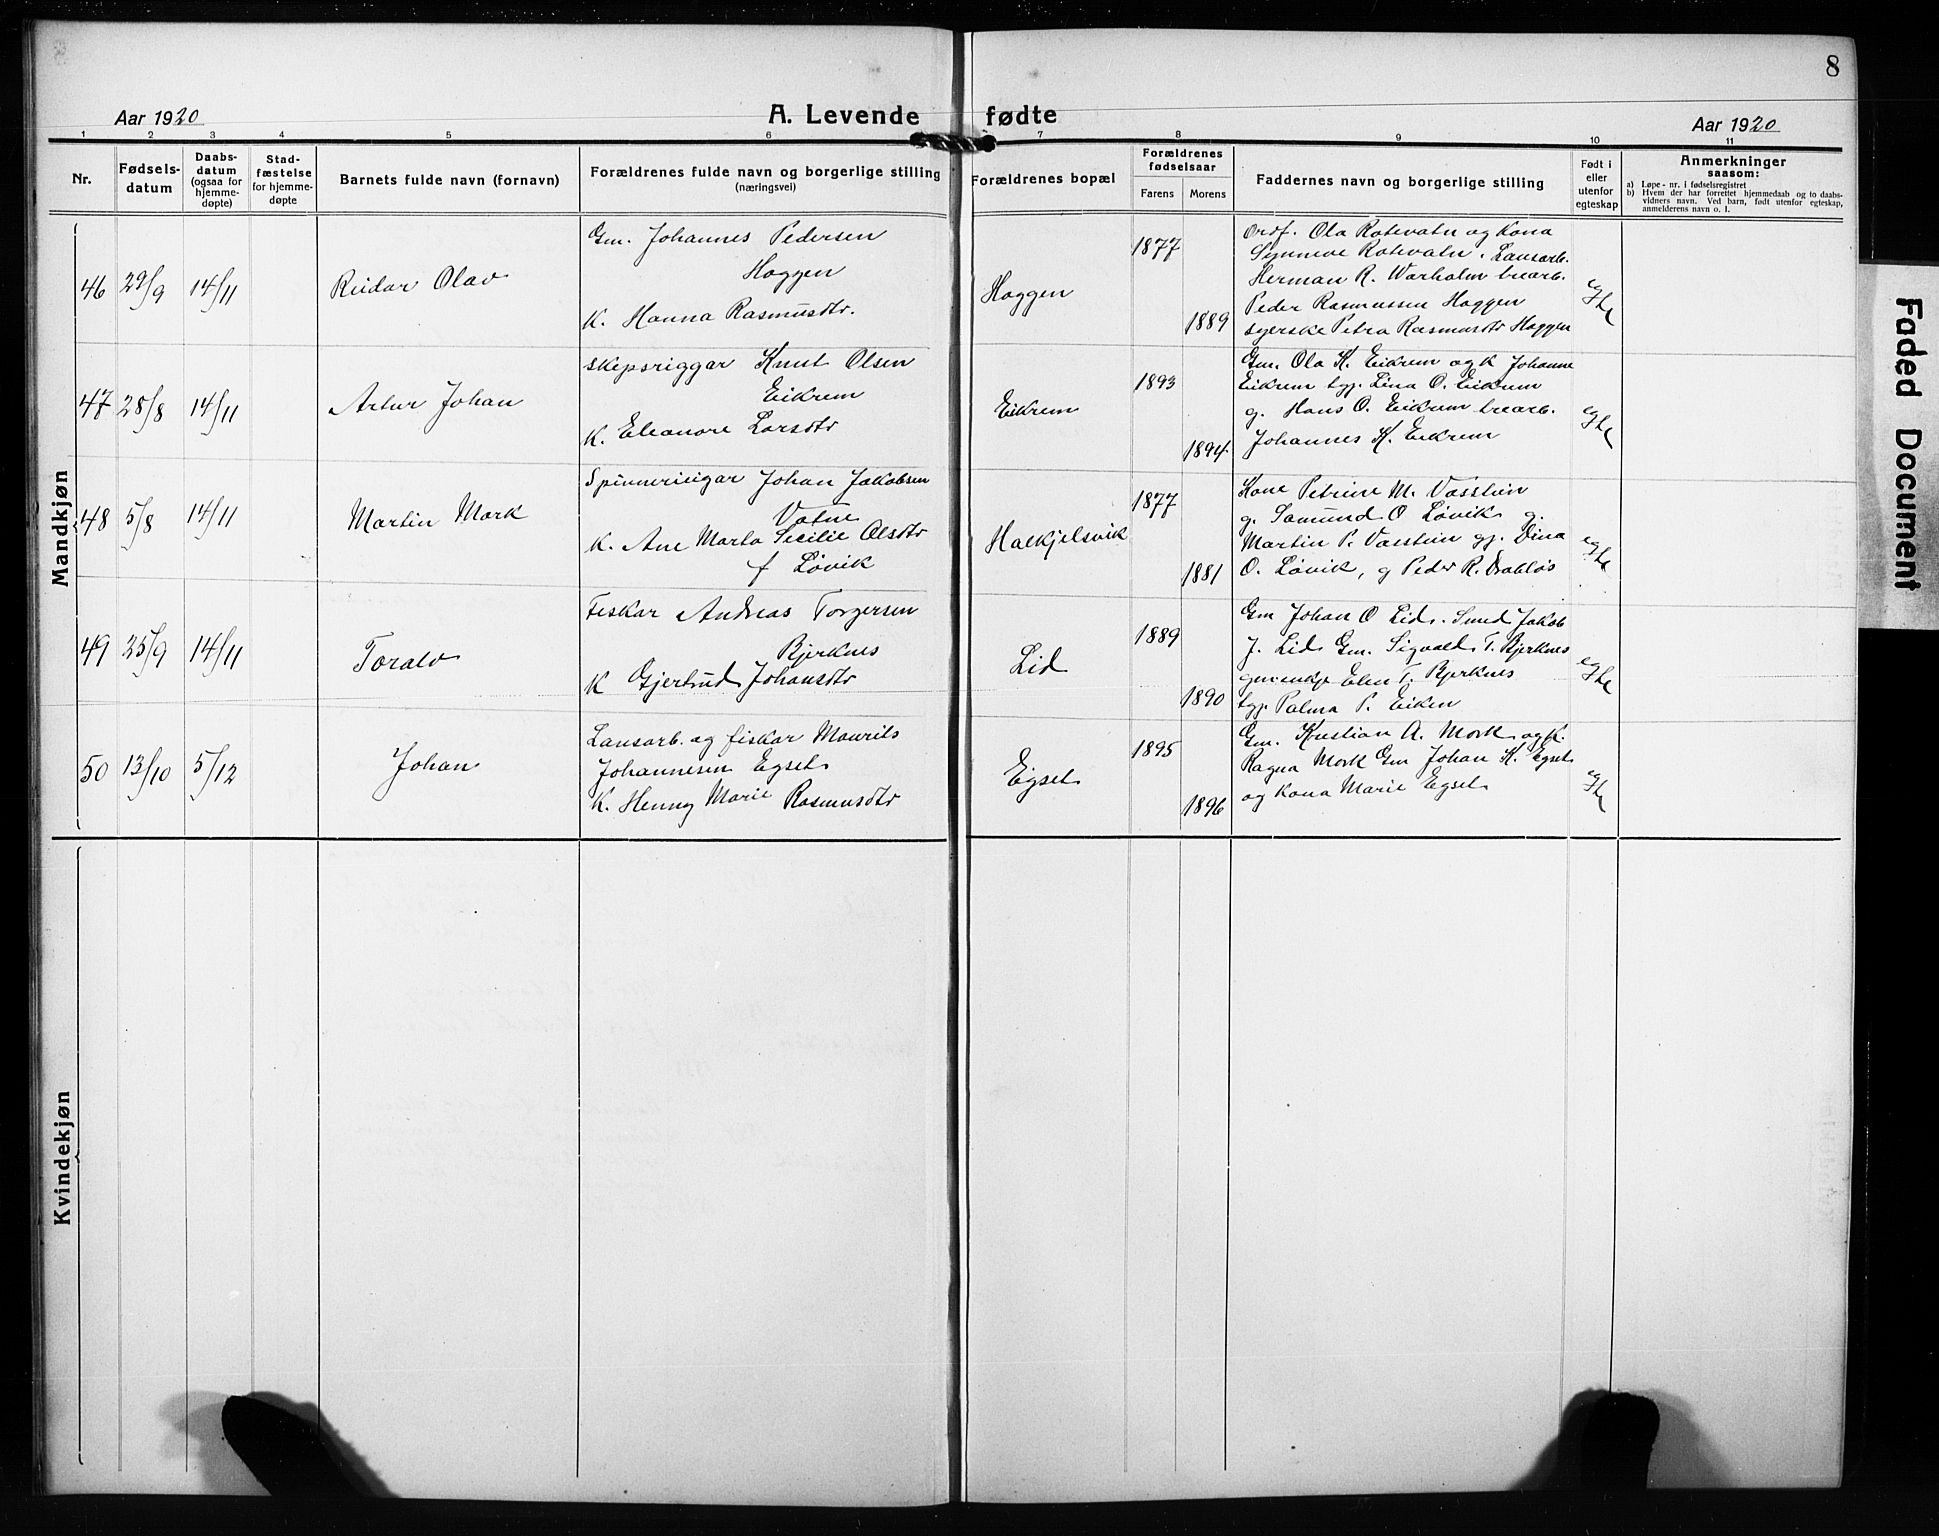 8
Aar 1920
A. Levende fødte
Aar 1920
1 2 3 4 5 6 7 8 9 10 11
Nr.
Fødsels-
datum
Daabs-
datum
(ogsaa for
hjemme-
døpte)
Stad-
fæstelse
for hjemme-
døpte
Barnets fulde navn (fornavn)
Forældrenes fulde navn og borgerlige stilling
(næringsvei)
Forældrenes bopæl
Forældrenes
fødselsaar
Farens Morens
Faddernes navn og borgerlige stilling
Født i
eller
utenfor
egteskap
Anmerkninger
saasom:
a) Løpe-nr. i fødselsregistret
b) Hvem der har forrettet hjemmedaab og to daabs-
vidners navn. Ved barn, født utenfor egteskap,
anmelderens navn o. l.
Mandkjøn
46 29/9 14/11
Reidar Olav
Gm. Johannes Pedersen
Haggen
K. Hanna Rasmusdtr.
Haggen
1877
1889
Ordf. Ola Rotevatn og Kona
Synneve Rotevatn. Lausarb.
Herman R. Warholm trearb.
Peder Rasmussen Haggen
syerske Petra Rasmusdtr Haggen
egte
47 28/8 14/11
Artur Johan
Skipsriggar Knut Olsen
Eikrem
K. Eleanore Larsdtr
Eikrem
1893
1894
Gm. Ola K. Eikrem og K Johanne
Eikrem tgp. Lina O. Eikrem
g. Hans O. Eikrem trearb.
Johannes K. Eikrem
egte
48 5/8 14/11
Martin Mork
Spinnerieigar Johan Jakobsen
Vatne
K. Ane Marta Secilie Olsdtr
f Løvik
Halkjelsvik
1877
1881
Kone Petrine M. Vasstein
g. Samund O Løvik g.
Martin P. Vasstein gp. Dina
O. Løvik, g Peder R. Drabløs
egte
49 25/9 14/11
Toralv
Fiskar Andreas Torgersen
Bjerknes
K Gjertrud Johansdtr
Lid
1889
1890
Gm Johan O Lid. Smed Jakob
J. Lid Gm. Sigvald T. Bjerknes
gmenkje Elen T. Bjerknes
tgp. Palma P. Eiken
egte
50 13/10 5/12
Johan
Lausarb. og fiskar Maurits
Johannesen Egset
K. Henny Marie Rasmusdtr
Egset
1895
1896
Gm. Kristian A. Mork og K.
Ragna Mork Gm Johan K. Egset
og Kona Marie Egset
egte
Kvindekjøn
Faded Document